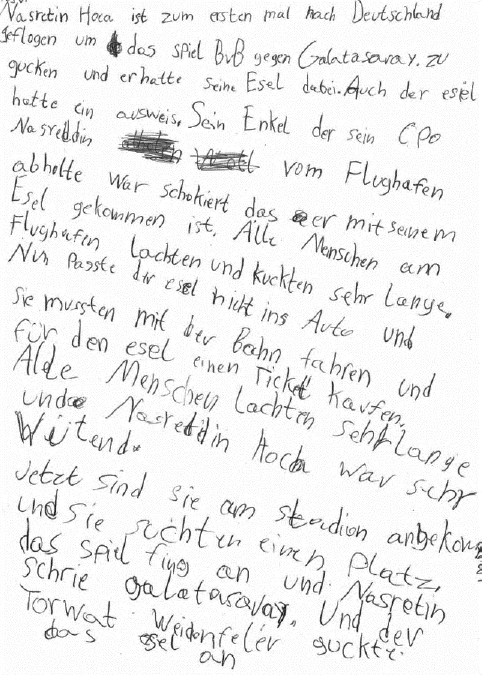 Nasretin Hoca ist zum ersten mal nach Deutschland
geflogen um das spiel BvB gegen Galatasaray. zu
gucken und er hatte seine Esel dabei. Auch der esel
hatte ein ausweis. Sein Enkel der sein Opa
Nasreddin vom Flughafen
abholte war schokiert das er mit seinem
Esel gekommen ist. Alle Menschen am
Flughafen lachten und kuckten sehr lange.
Nun Passte der esel nicht ins Auto und
sie mussten mit der Bahn fahren und
für den esel einen Ticket kaufen.
Alle Menschen lachten sehr lange
und Nasreddin Hoca war sehr
Wütend.
Jetzt sind sie am stadion angekomm
und sie suchten einen Platz,
das spiel fing an und Nasretin
schrie galatasaray, Und der
Torwat Weidenfeler guckte
das esel an